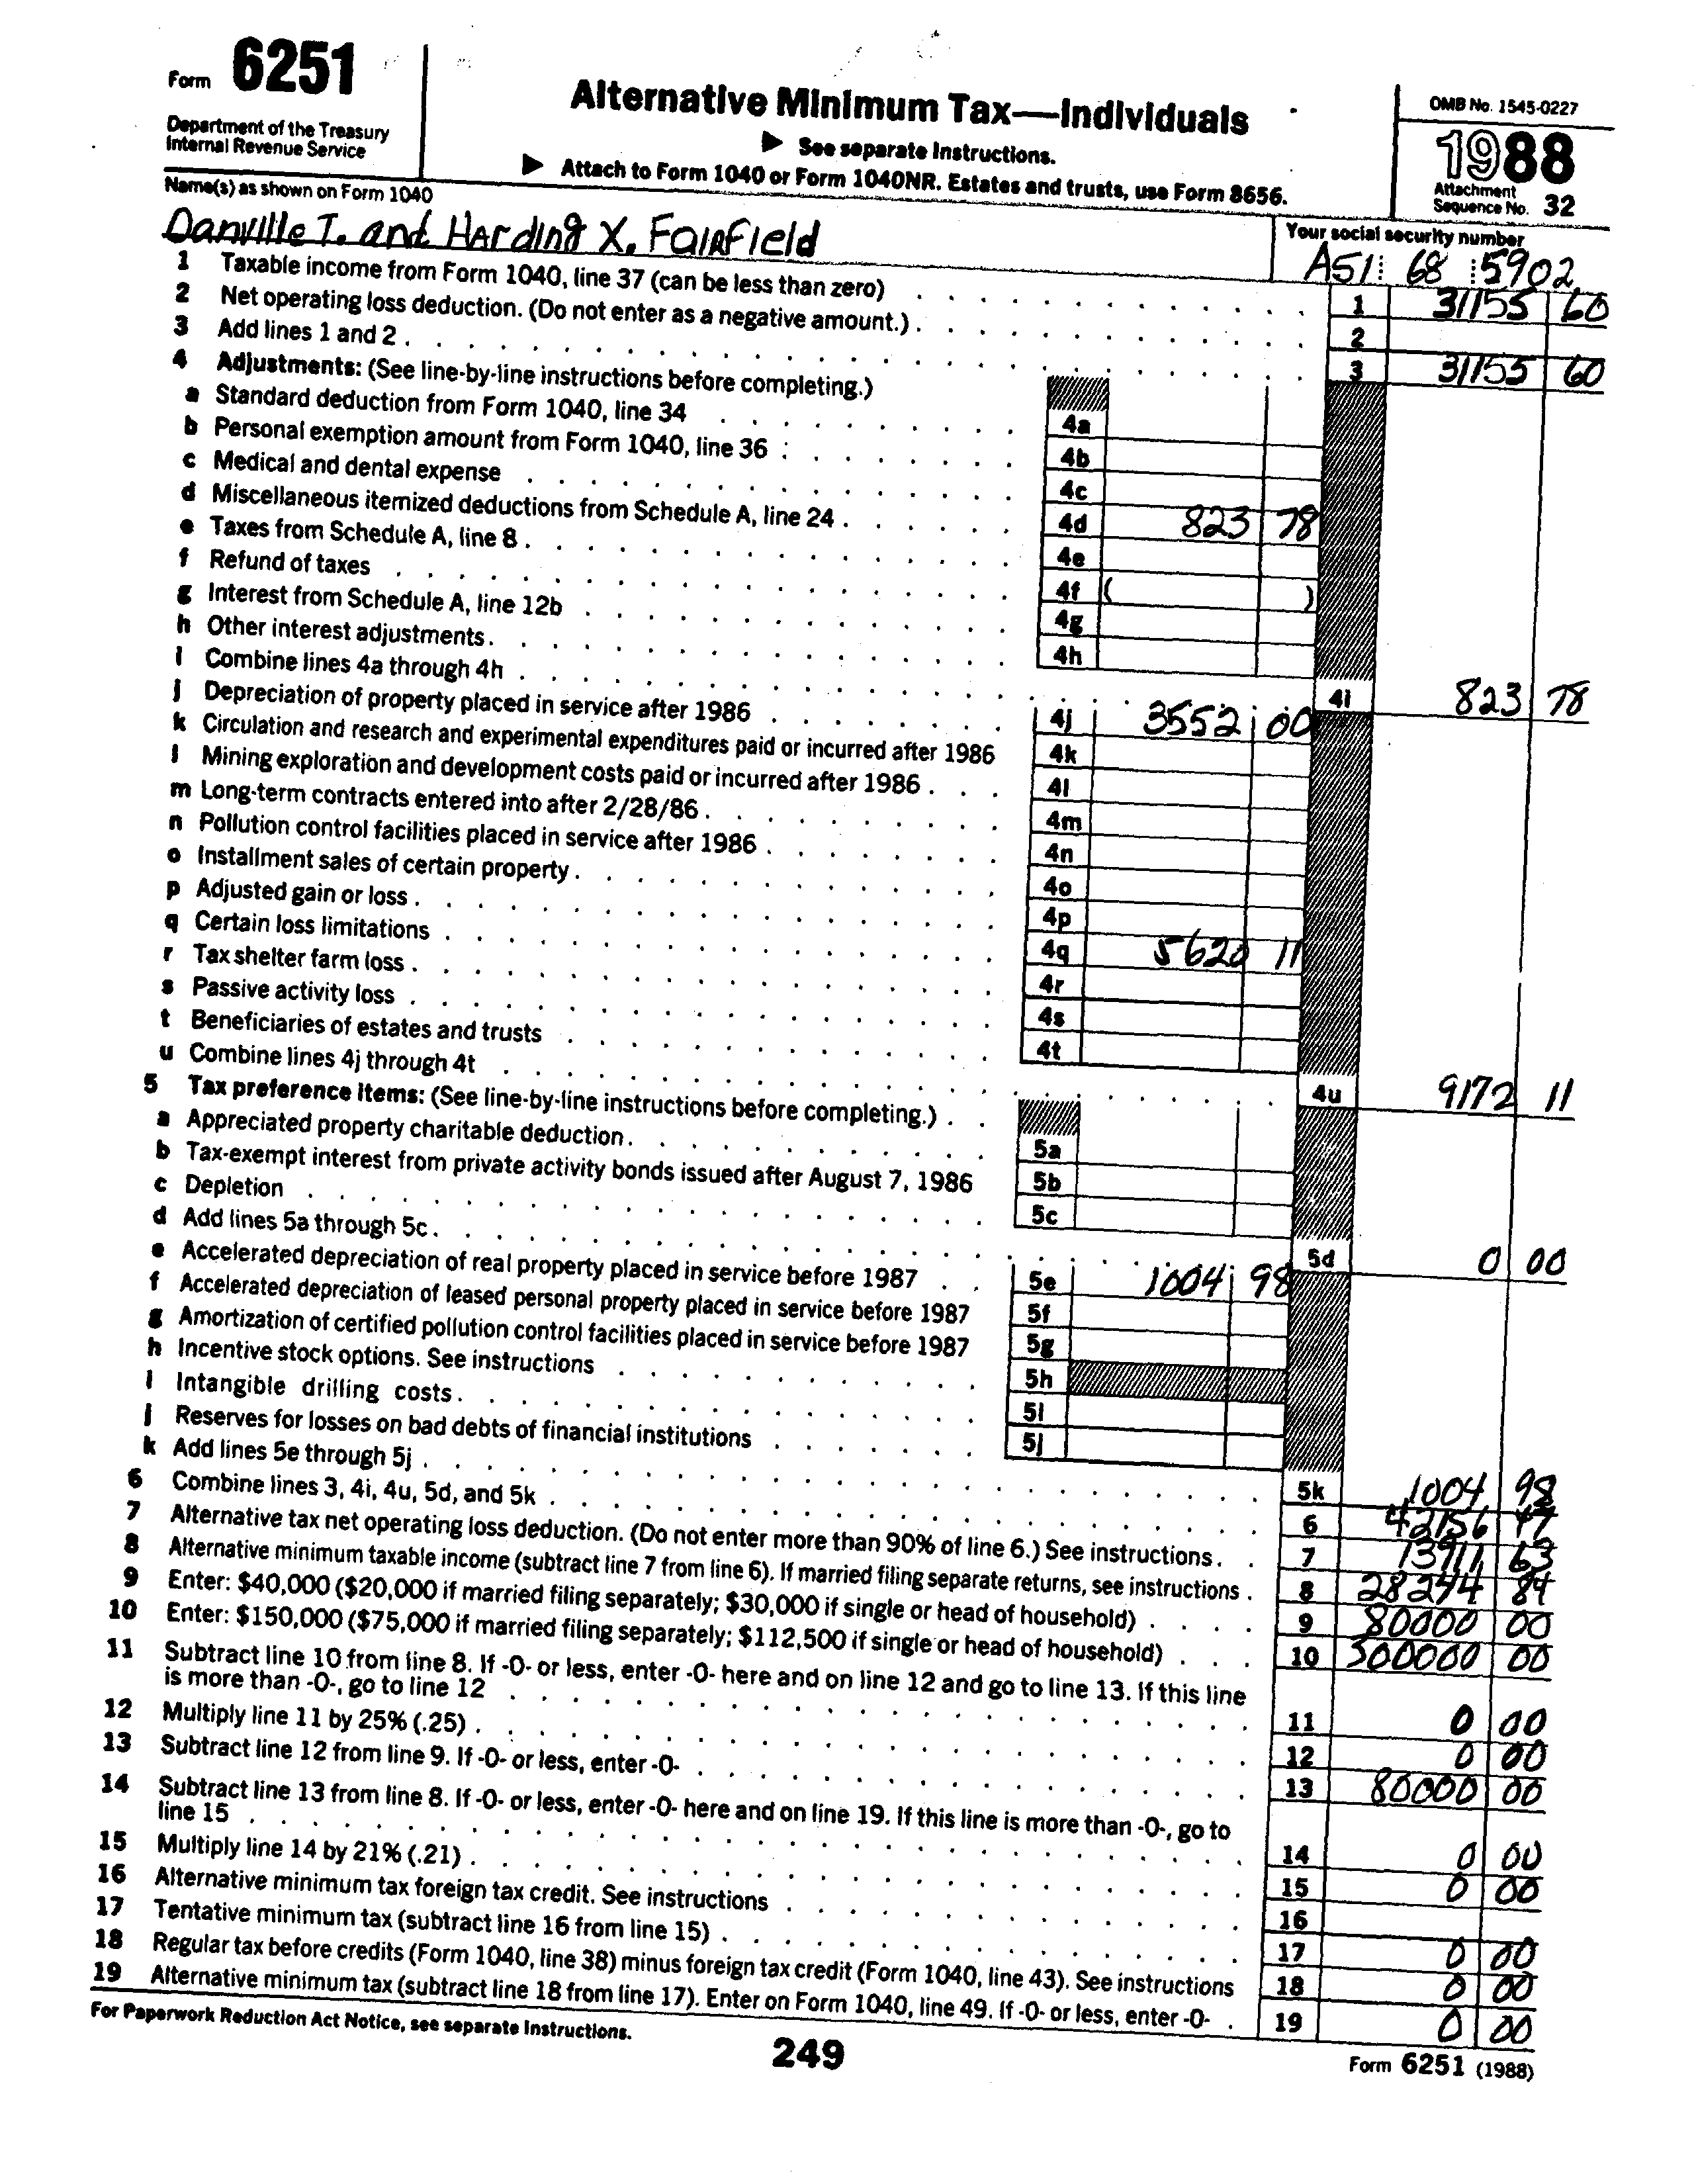 Form 6251
Department of the Treasury
Internal Revenue Service
Alternative Minimum Tax—Individuals
▶ See separate Instructions.
▶ Attach to Form 1040 or Form 1040NR. Estates and trusts, use Form 8656.
OMB No. 1545-0227
1988
Attachment
Sequence No. 32
Name(s) as shown on Form 1040
Danville T. and Harding X. Fairfield
Your social security number
A51 68 5902
1 Taxable income from Form 1040, line 37 (can be less than zero) 1 31155 60
2 Net operating loss deduction. (Do not enter as a negative amount.) 2
3 Add lines 1 and 2 3 31155 60
4 Adjustments: (See line-by-line instructions before completing.)
a Standard deduction from Form 1040, line 34 4a
b Personal exemption amount from Form 1040, line 36 4b
c Medical and dental expense 4c
d Miscellaneous itemized deductions from Schedule A, line 24 4d 823 78
e Taxes from Schedule A, line 8 4e
f Refund of taxes 4f ( )
g Interest from Schedule A, line 12b 4g
h Other interest adjustments 4h
i Combine lines 4a through 4h 4i 823 78
j Depreciation of property placed in service after 1986 4j 3552 00
k Circulation and research and experimental expenditures paid or incurred after 1986 4k
l Mining exploration and development costs paid or incurred after 1986 4l
m Long-term contracts entered into after 2/28/86 4m
n Pollution control facilities placed in service after 1986 4n
o Installment sales of certain property 4o
p Adjusted gain or loss 4p
q Certain loss limitations 4q 5620 11
r Tax shelter farm loss 4r
s Passive activity loss 4s
t Beneficiaries of estates and trusts 4t
u Combine lines 4j through 4t 4u 9172 11
5 Tax preference items: (See line-by-line instructions before completing.)
a Appreciated property charitable deduction 5a
b Tax-exempt interest from private activity bonds issued after August 7, 1986 5b
c Depletion 5c
d Add lines 5a through 5c 5d 0 00
e Accelerated depreciation of real property placed in service before 1987 5e 1004 98
f Accelerated depreciation of leased personal property placed in service before 1987 5f
g Amortization of certified pollution control facilities placed in service before 1987 5g
h Incentive stock options. See instructions 5h
i Intangible drilling costs 5i
j Reserves for losses on bad debts of financial institutions 5j
k Add lines 5e through 5j 5k 1004 98
6 Combine lines 3, 4i, 4u, 5d, and 5k 6 42156 47
7 Alternative tax net operating loss deduction. (Do not enter more than 90% of line 6.) See instructions 7 13911 63
8 Alternative minimum taxable income (subtract line 7 from line 6). If married filing separate returns, see instructions 8 28244 84
9 Enter: $40,000 ($20,000 if married filing separately; $30,000 if single or head of household) 9 80000 00
10 Enter: $150,000 ($75,000 if married filing separately; $112,500 if single or head of household) 10 300000 00
11 Subtract line 10 from line 8. If -0- or less, enter -0- here and on line 12 and go to line 13. If this line
is more than -0-, go to line 12 11 0 00
12 Multiply line 11 by 25% (.25) 12 0 00
13 Subtract line 12 from line 9. If -0- or less, enter -0- 13 80000 00
14 Subtract line 13 from line 8. If -0- or less, enter -0- here and on line 19. If this line is more than -0-, go to
line 15 14 0 00
15 Multiply line 14 by 21% (.21) 15 0 00
16 Alternative minimum tax foreign tax credit. See instructions 16
17 Tentative minimum tax (subtract line 16 from line 15) 17 0 00
18 Regular tax before credits (Form 1040, line 38) minus foreign tax credit (Form 1040, line 43). See instructions 18 0 00
19 Alternative minimum tax (subtract line 18 from line 17). Enter on Form 1040, line 49. If -0- or less, enter -0- 19 0 00
For Paperwork Reduction Act Notice, see separate Instructions.
249
Form 6251 (1988)